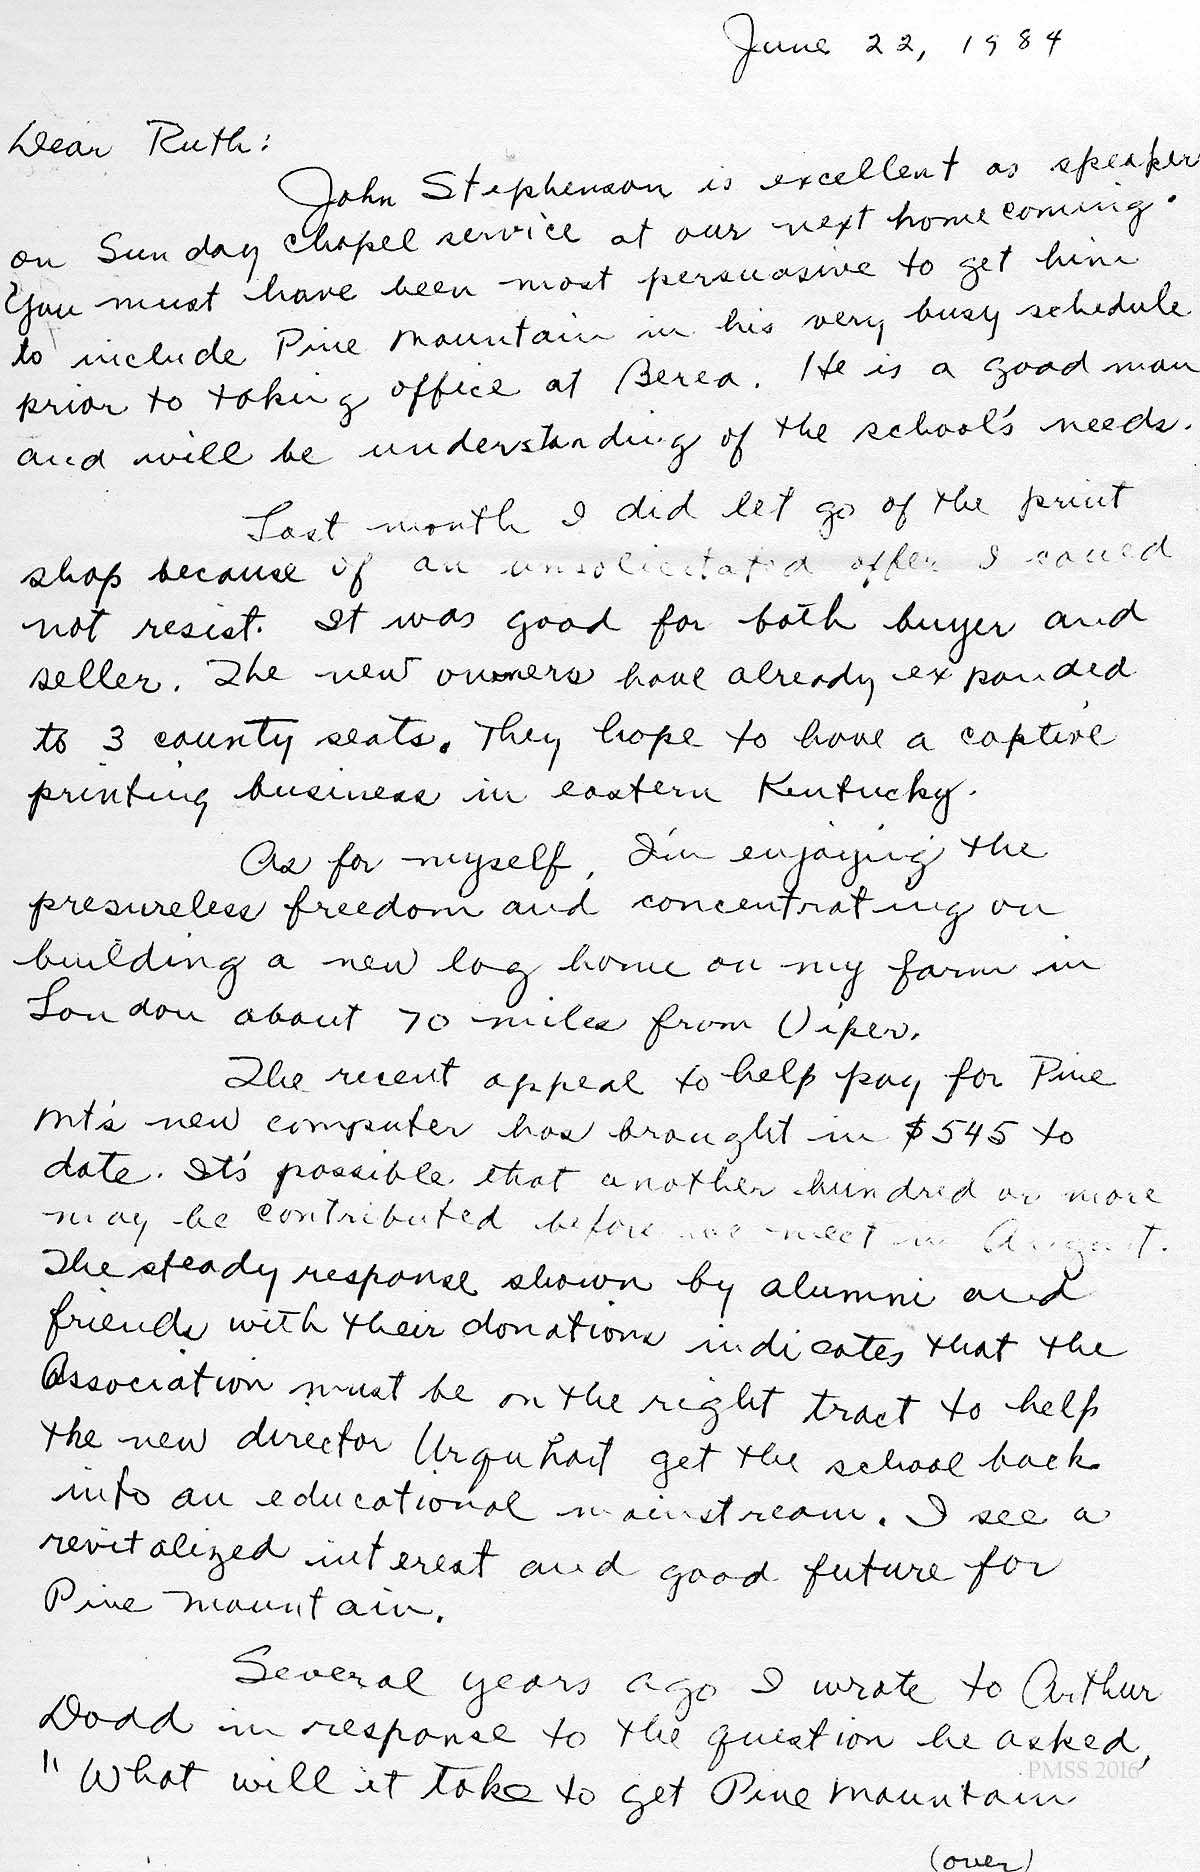 June 22, 1984
Dear Ruth:
John Stephenson is excellent as speaker
on Sunday chapel service at our next homecoming.
You must have been most persuasive to get him
to include Pine Mountain in his very busy schedule
prior to taking office at Berea. He is a good man
and will be understanding of the school's needs.
Last month I did let go of the print
shop because of an unsolicitated offer I could
not resist. It was good for both buyer and
seller. The new owners have already expanded
to 3 county seats. They hope to have a captive
printing business in eastern Kentucky.
As for myself, I'm enjoying the
presureless freedom and concentrating on
building a new log home on my farm in
London about 70 miles from Viper.
The recent appeal to help pay for Pine
Mt's new computer has brought in $545 to
date. It's possible that another hundred or more
may be contributed before we meet in August.
The steady response shown by alumni and
friends with their donations indicates that the
Association must be on the right tract to help
the new director Urquhart get the school back
into an educational mainstream. I see a
revitalized interest and good future for
Pine Mountain.
Several years ago I wrote to Arthur
Dodd in response to the question he asked,
"What will it take to get Pine Mountain
PMSS 2016
(over)